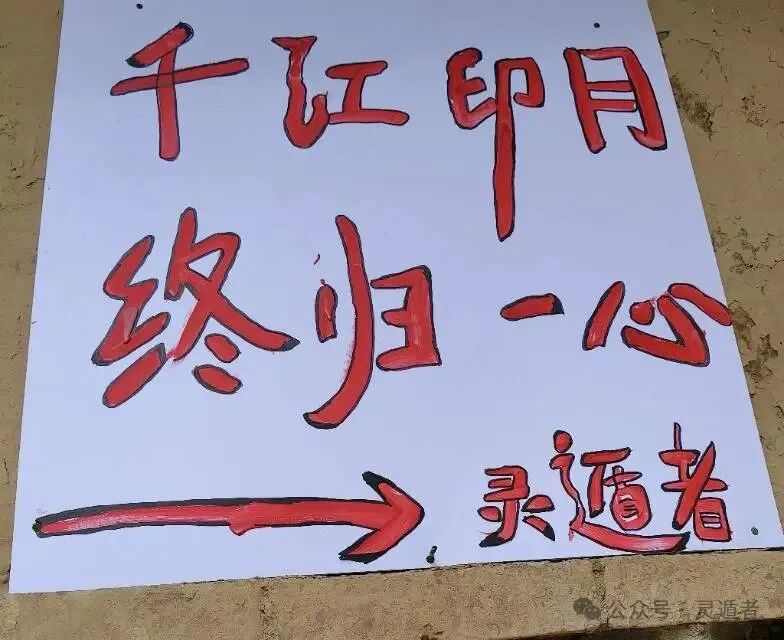 千江印月
终归一心
灵遁者
公众号·灵遁者